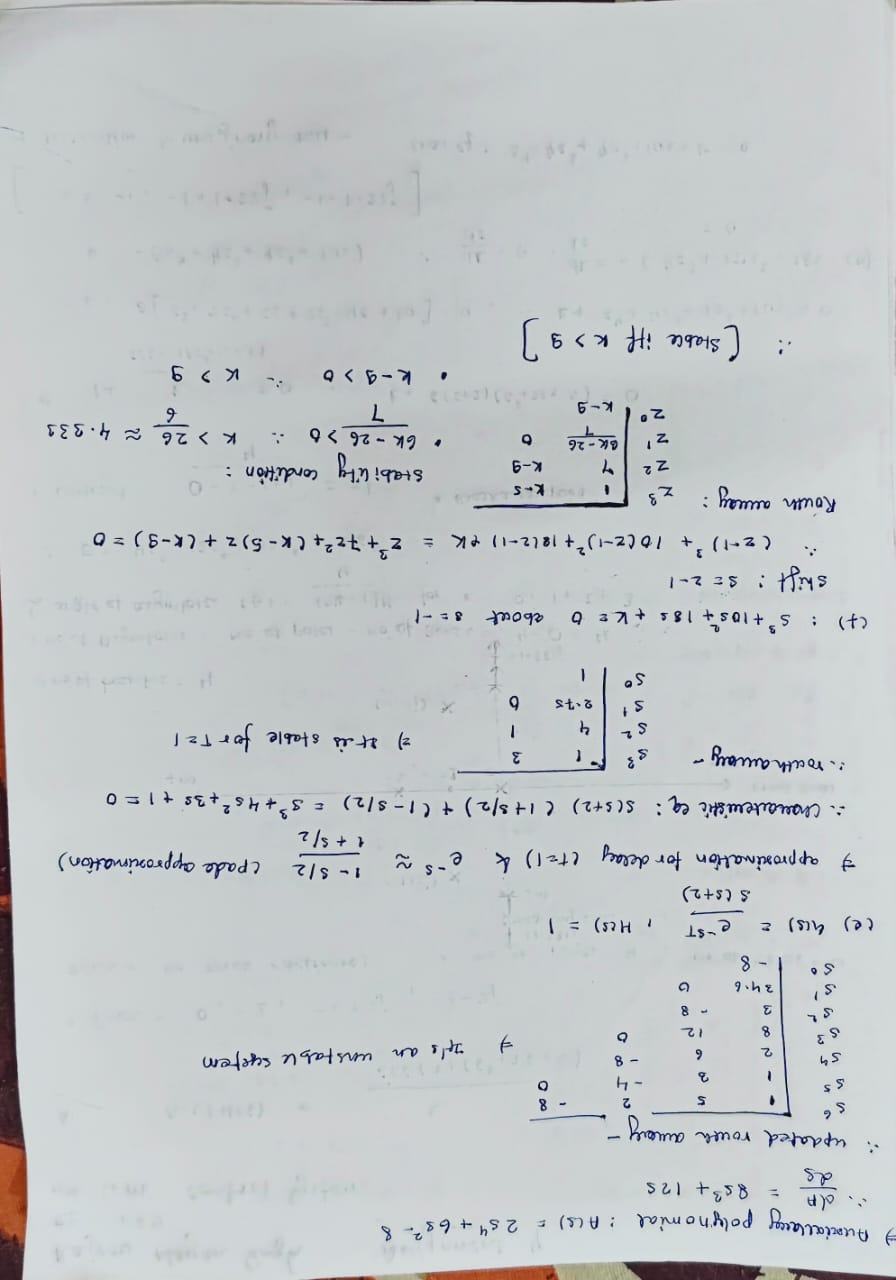 ⇒ Auxiallary polynomial : A(s) = 2s⁴ + 6s² - 8
∴ dA/ds = 8s³ + 12s
∴ updated routh array -
s⁶ | 1 5 2 -8
s⁵ | 1 3 -4 0
s⁴ | 2 6 -8
s³ | 8 12 0 ⇒ It's an unstable system
s² | 3 -8
s¹ | 34.6 0
s⁰ | -8
(e) G(s) = e^-sT / s(s+2) , H(s) = 1
⇒ approximation for delay (T=1) & e^-s ≈ (1 - s/2) / (1 + s/2) (pade approximation)
∴ characteristic eq : s(s+2) (1+s/2) + (1-s/2) = s³ + 4s² + 3s + 1 = 0
∴ routh array - s³ | 1 3
s² | 4 1 ⇒ It is stable for T=1
s¹ | 2.75 0
s⁰ | 1
(f) : s³ + 10s² + 18s + K = 0 about s = -1
shift : s = z-1
∴ (z-1)³ + 10(z-1)² + 18(z-1) + K = z³ + 7z² + (K-5)z + (K-9) = 0
Routh array : z³ | 1 K-5
z² | 7 K-9 stability condition :
z¹ | 8K-26 / 7 0 • 6K-26 / 7 > 0 ∴ K > 26/6 ≈ 4.333
z⁰ | K-9
• K-9 > 0 ∴ K > 9
∴ [Stable iff K > 9]